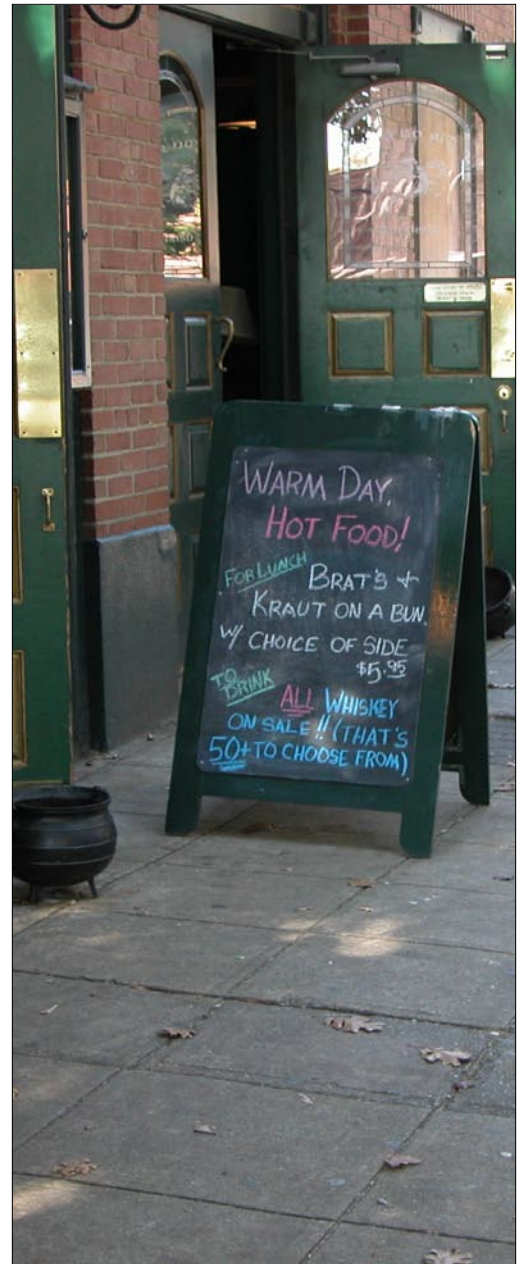 WARM DAY,
HOT FOOD!
FOR LUNCH
BRAT'S +
KRAUT ON A BUN
W/ CHOICE OF SIDE
$5.95
TO
DRINK
ALL WHISKEY
ON SALE!! (THAT'S
50+ TO CHOOSE FROM)